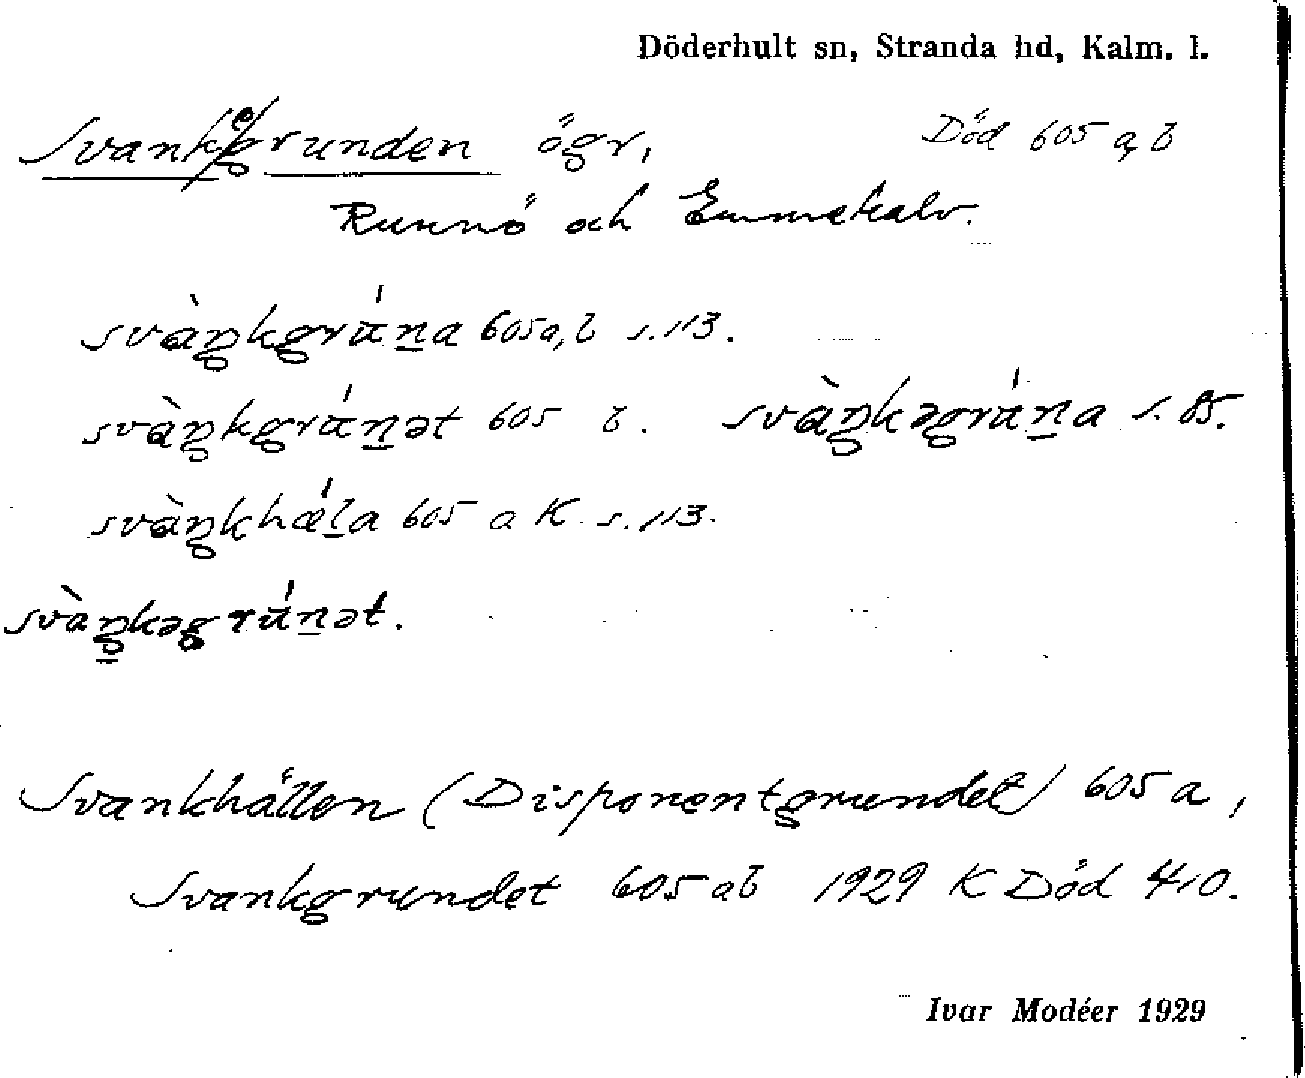 Döderhult sn, Stranda hd, Kalm. l.
Svank(e)grunden ögr, Död 605 a, b
Runnö och Emmekalv.
svàŋkgrúṉa 605a, b s. 113.
svàŋkgrúṉət 605 b. svàŋkəgrúṉa s. 85.
svàŋkhǽḻa 605 a K s. 113.
svàŋkəgrúṉət.
Svankhällen (Disponentgrundet) 605 a,
Svankgrundet 605 ab 1929 K Död 410.
Ivar Modéer 1929